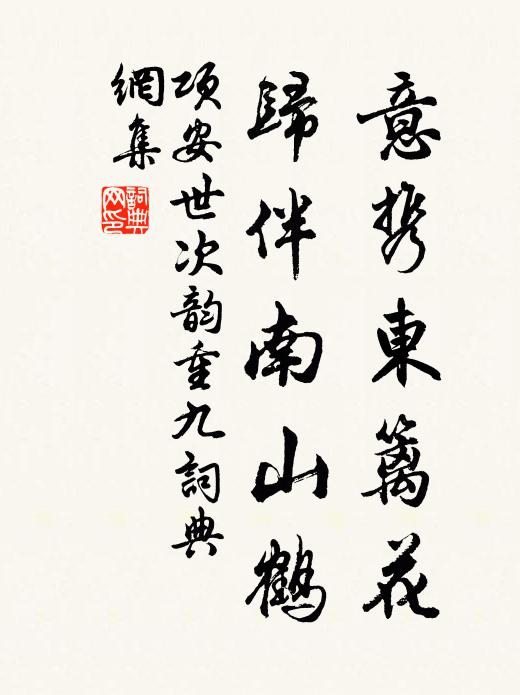 意携東籬花
歸伴南山鶴
項安世次韵重九詞典
網集
詞典
网印